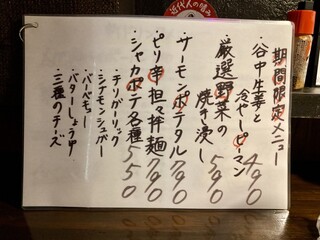 期間限定メニュー
・谷中生姜と
冷やしピーマン 490
・厳選野菜の
焼き浸し 590
・サーモンポテタル 790
・ピリ辛担々拌麺 790
・シャカポテ各種 550
・チリガーリック
・シナモンシュガー
・バーベキュー
・バターしょうゆ
・三種のチーズ